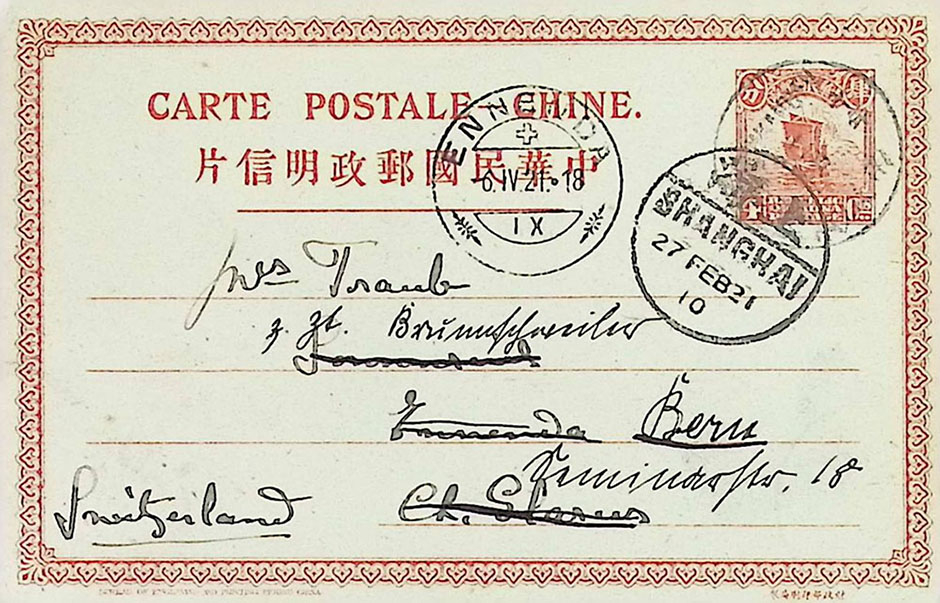 CARTE POSTALE-CHINE.
片信明政郵國民華中
ENNENDA
6.IV.21.18
IX
SHANGHAI
27 FEB 21
10
Traub
z. Zt. Brunnschweiler
Ennenda Bern
Seminarstr. 18
Switzerland Ct. Glarus